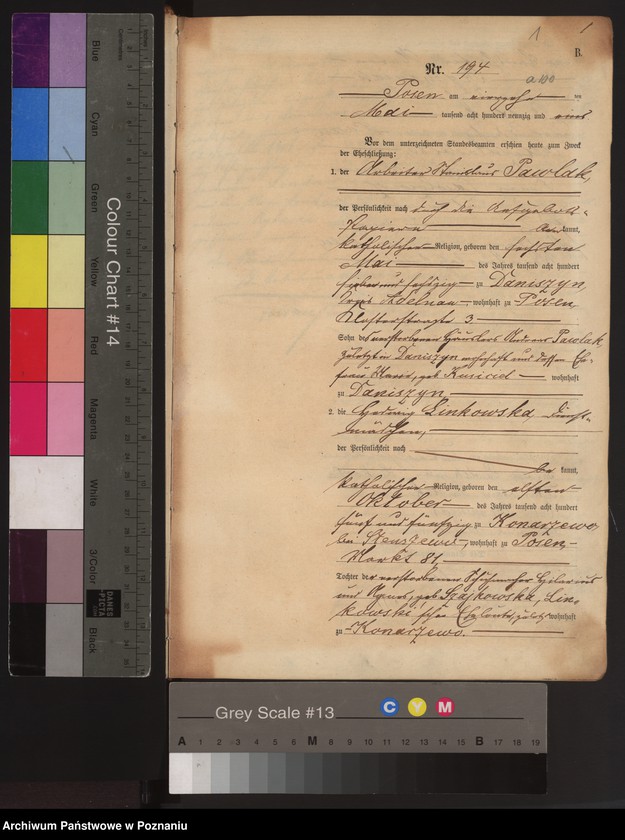 1
B.
Nr. 194
Posen am vierzehnten
Mai tausend acht hundert neunzig und eins.
Vor dem unterzeichneten Standesbeamten erschien heute zum Zweck
der Eheschließung:
1. der Arbeiter Stanislaus Pawlak,
der Persönlichkeit nach durch die Aufgebots-
Papiere kannt,
katholischer Religion, geboren den sechsten
Mai des Jahres tausend acht hundert
sieben und sechzig zu Daniszyn,
Kreis Adelnau, wohnhaft zu Posen,
Klosterstraße 3
Sohn des verstorbenen Häuslers Pawlak
zuletzt in Daniszyn wohnhaft und dessen Ehe-
frau Maria, geb. wohnhaft
zu Daniszyn,
2. die Hedwig Linkowska, Dienst-
mädchen,
der Persönlichkeit nach
be kannt,
katholischer Religion, geboren den elften
Oktober des Jahres tausend acht hundert
fünf und fünfzig zu Konarzewo
bei Stenszewo, wohnhaft zu Posen,
Markt 81,
Tochter der verstorbenen Schuhmacher Hilarius
und geb. Lin-
kowski'schen Eheleute, zuletzt wohnhaft
zu Konarzewo.
Colour Chart #14
Centimetres
Blue
Cyan
Green
Yellow
Red
Magenta
White
3/Color
Black
DANES
-PICTA
.COM
Grey Scale #13
C Y M
A 1 2 3 4 5 6 M 8 9 10 11 12 13 14 15 B 17 18 19
Archiwum Państwowe w Poznaniu